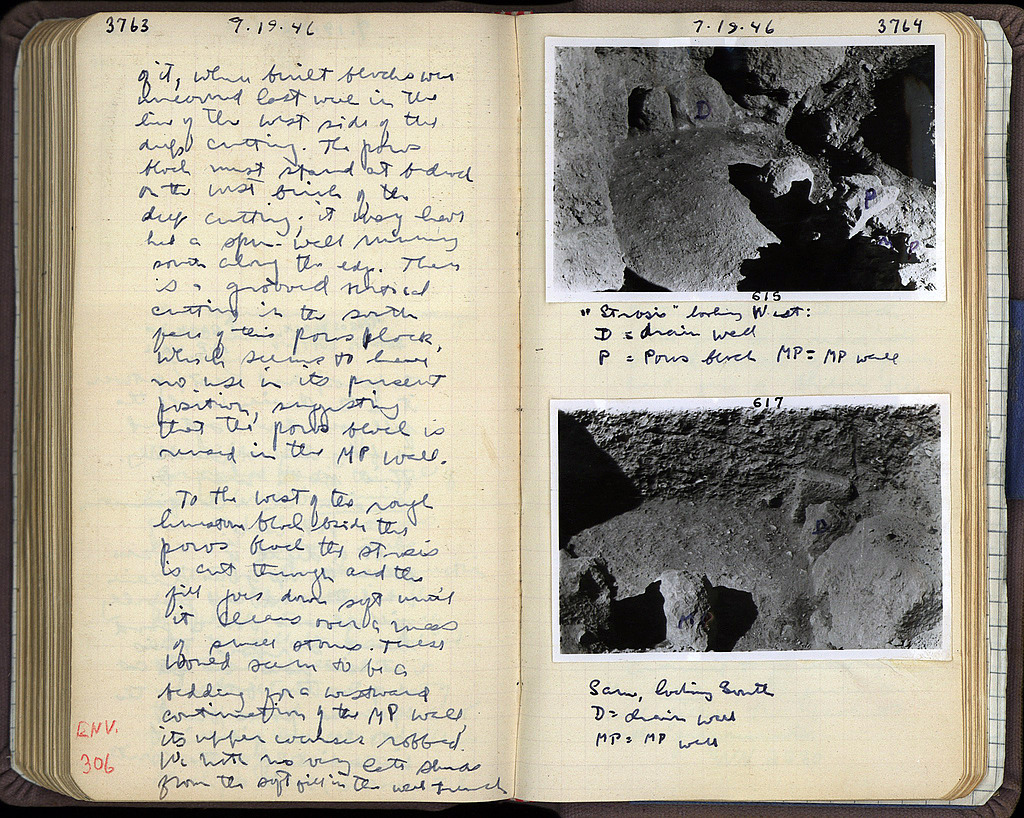 3763 7.19.46
of it, where built blocks were
uncovered last week in the
line of the west side of the
deep cutting. The poros
block must stand at bedrock
on the west brink of the
deep cutting; it may have
had a spur wall running
south along the edge. There
is a grooved vertical
cutting in the south
face of this poros block,
which seems to have
no use in its present
position, suggesting
that the poros block is
reused in the MP wall.
To the west of the rough
limestone block beside the
poros block the strosis
is cut through and the
fill goes down soft until
it cleans over a mass
of small stones. These
would seem to be a
bedding for a westward
continuation of the MP wall,
its upper courses robbed.
We with no very late sherds
from the soft fill in the west trench
ENV.
306
7.19.46 3764
D
P
MP
615
"Strosis" looking West:
D = drain well
P = Poros block MP = MP wall
617
D
MP
Same, looking South
D = drain well
MP = MP wall